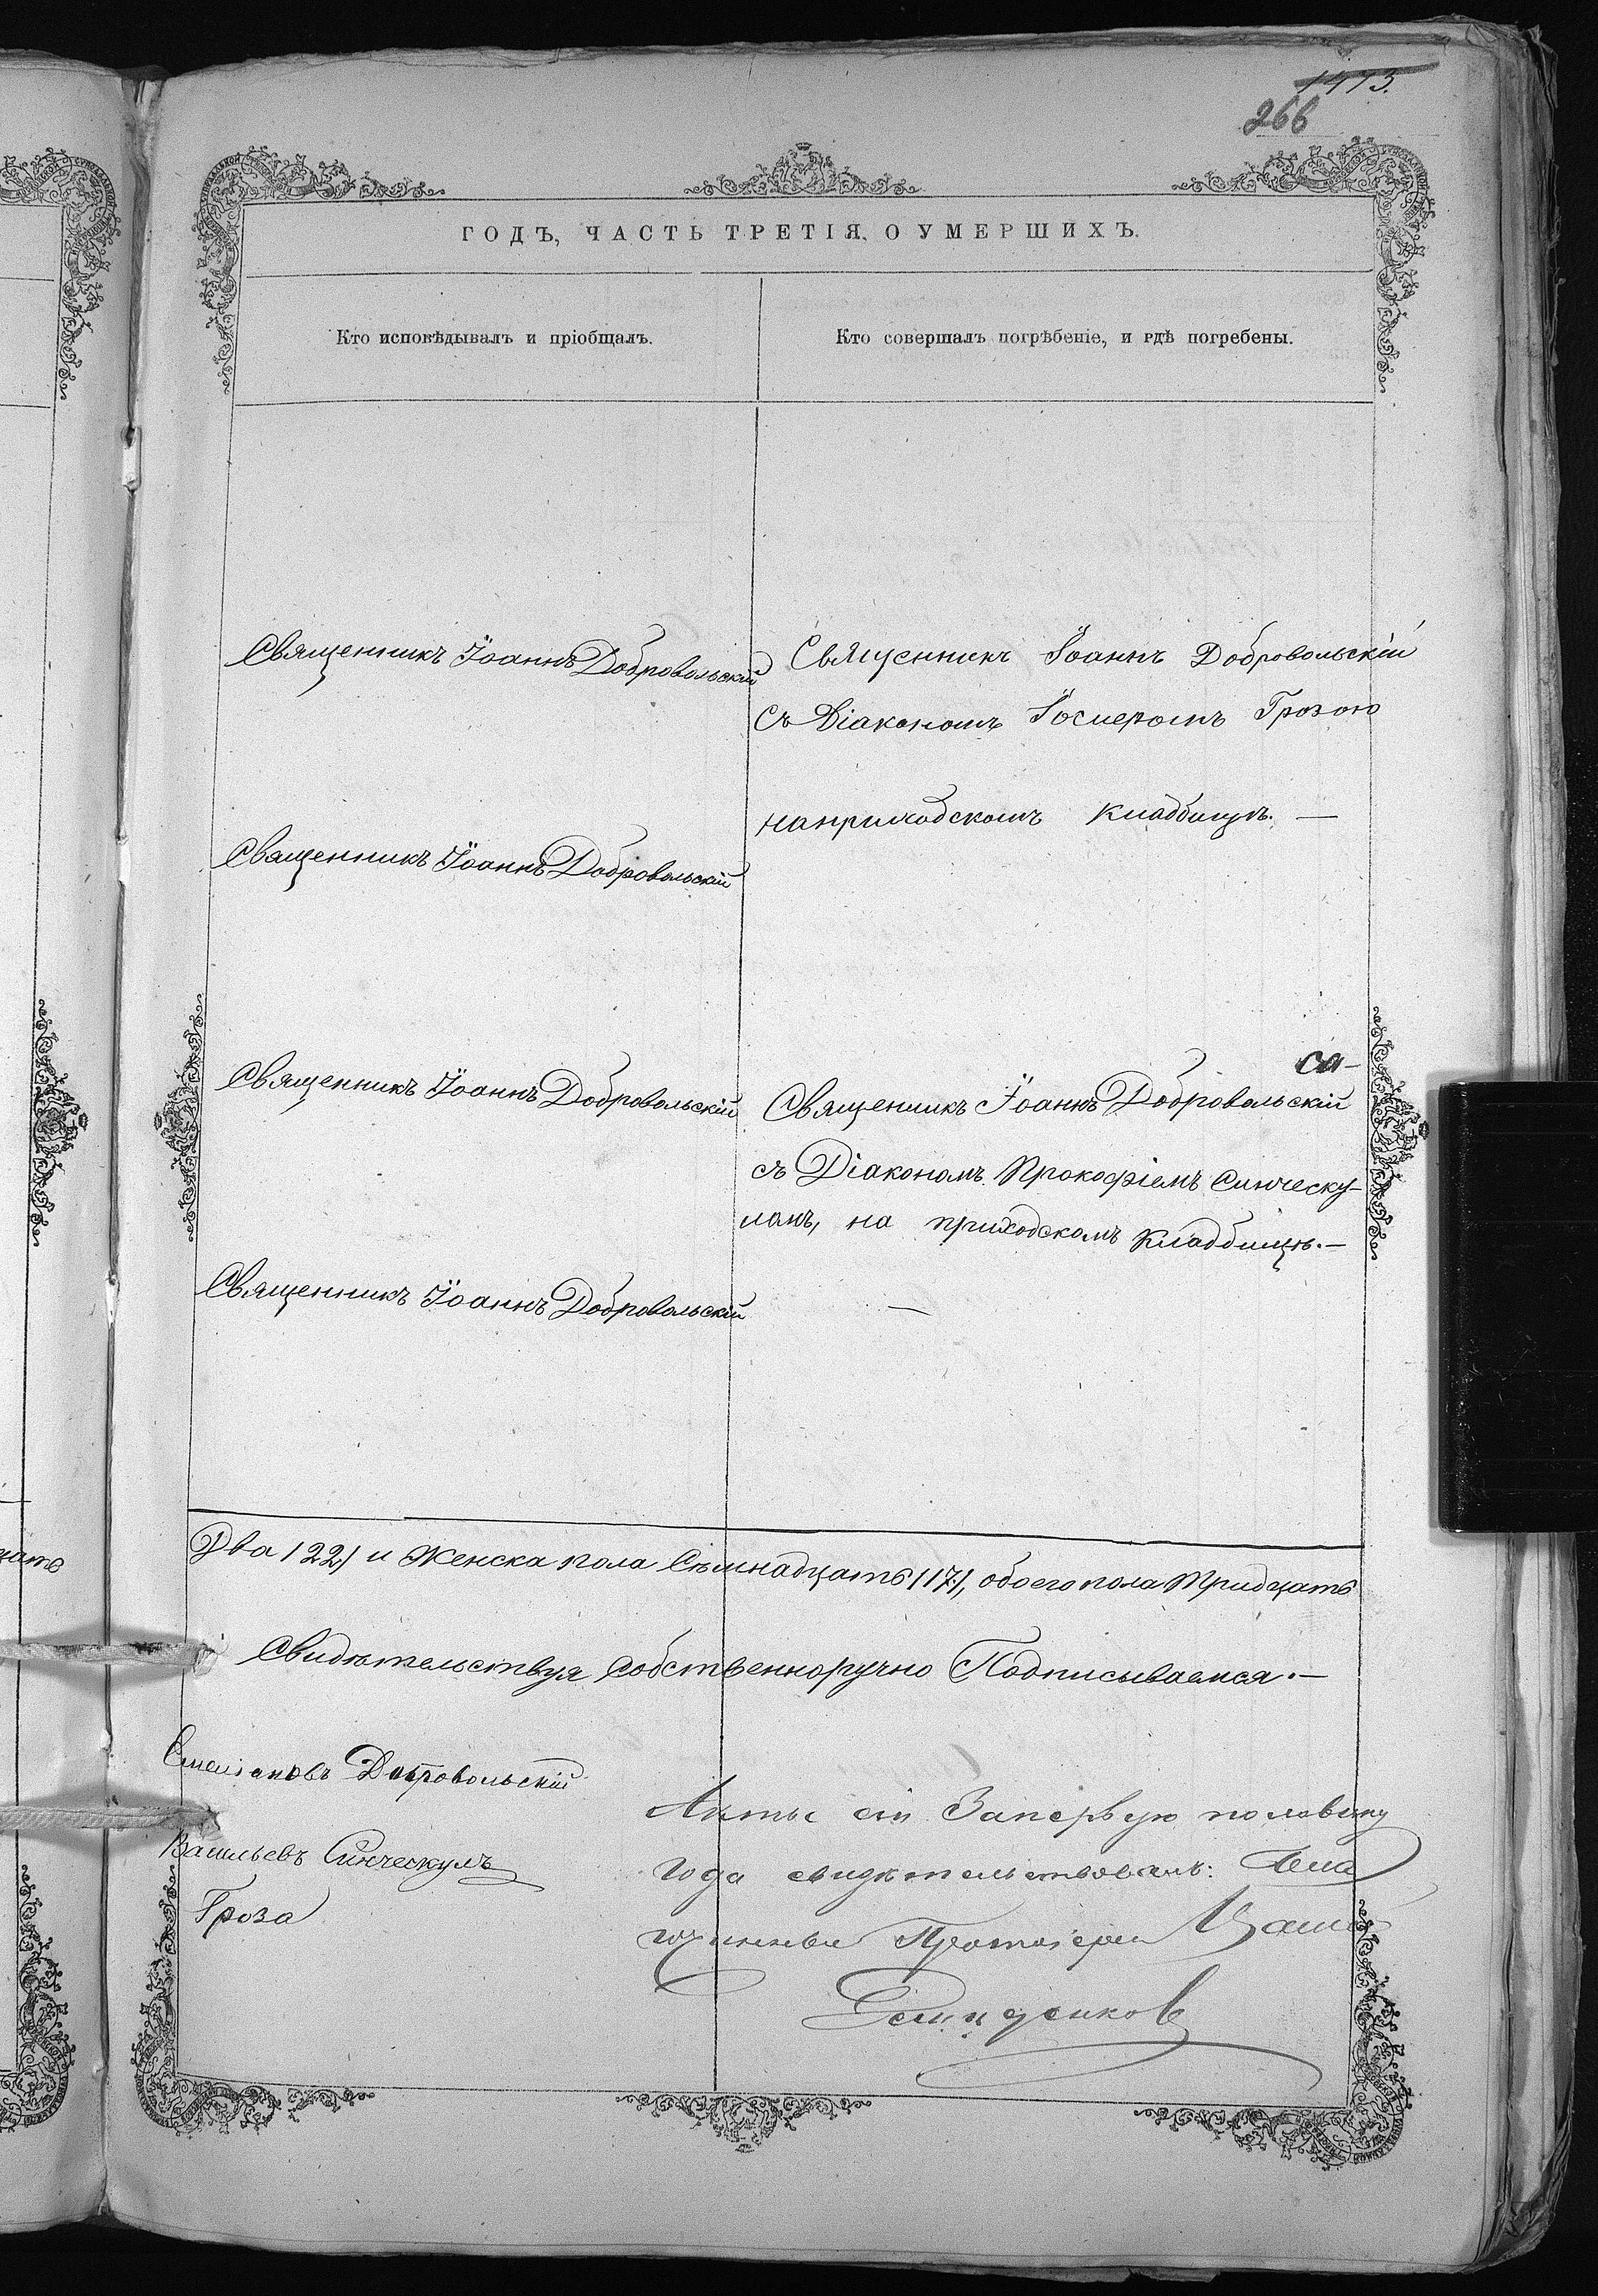 1473.
266
ГОДЪ, ЧАСТЬ ТРЕТІЯ, О УМЕРШИХЪ.
Кто исповѣдывалъ и пріобщалъ.
Кто совершалъ погрѣбеніе, и гдѣ погребены.
Священникъ Іоаннъ Добровольскій
Священникъ Іоаннъ Добровольскій
съ Діакономъ Грозою
Священникъ Іоаннъ Добровольскій
наприходскомъ кладбищѣ. —
Священникъ Іоаннъ Добровольскій
са-
Священникъ Іоаннъ Добровольскій
съ Діакономъ Прокофіемъ Синческу-
ломъ, на приходскомъ кладбищѣ. —
Священникъ Іоаннъ Добровольскій
—
Два /22/ и Женска пола Сѣмнадцать /17/, обоего пола тридцать
Свидѣтельствуя Собственноручно Подписываемся. —
Добровольскій
Васильевъ Синческулъ
Гроза
Акты сіи За первую половину
года свидѣтельствовалъ:
Протоіерей